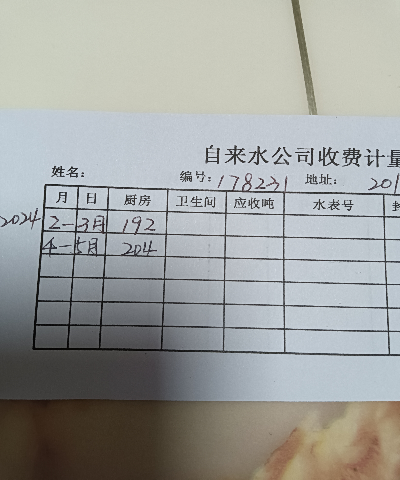 自来水公司收费计量
姓名: 编号: 178231 地址: 201
月 日 厨房 卫生间 应收吨 水表号
2024 2-3月 192
4-5月 204